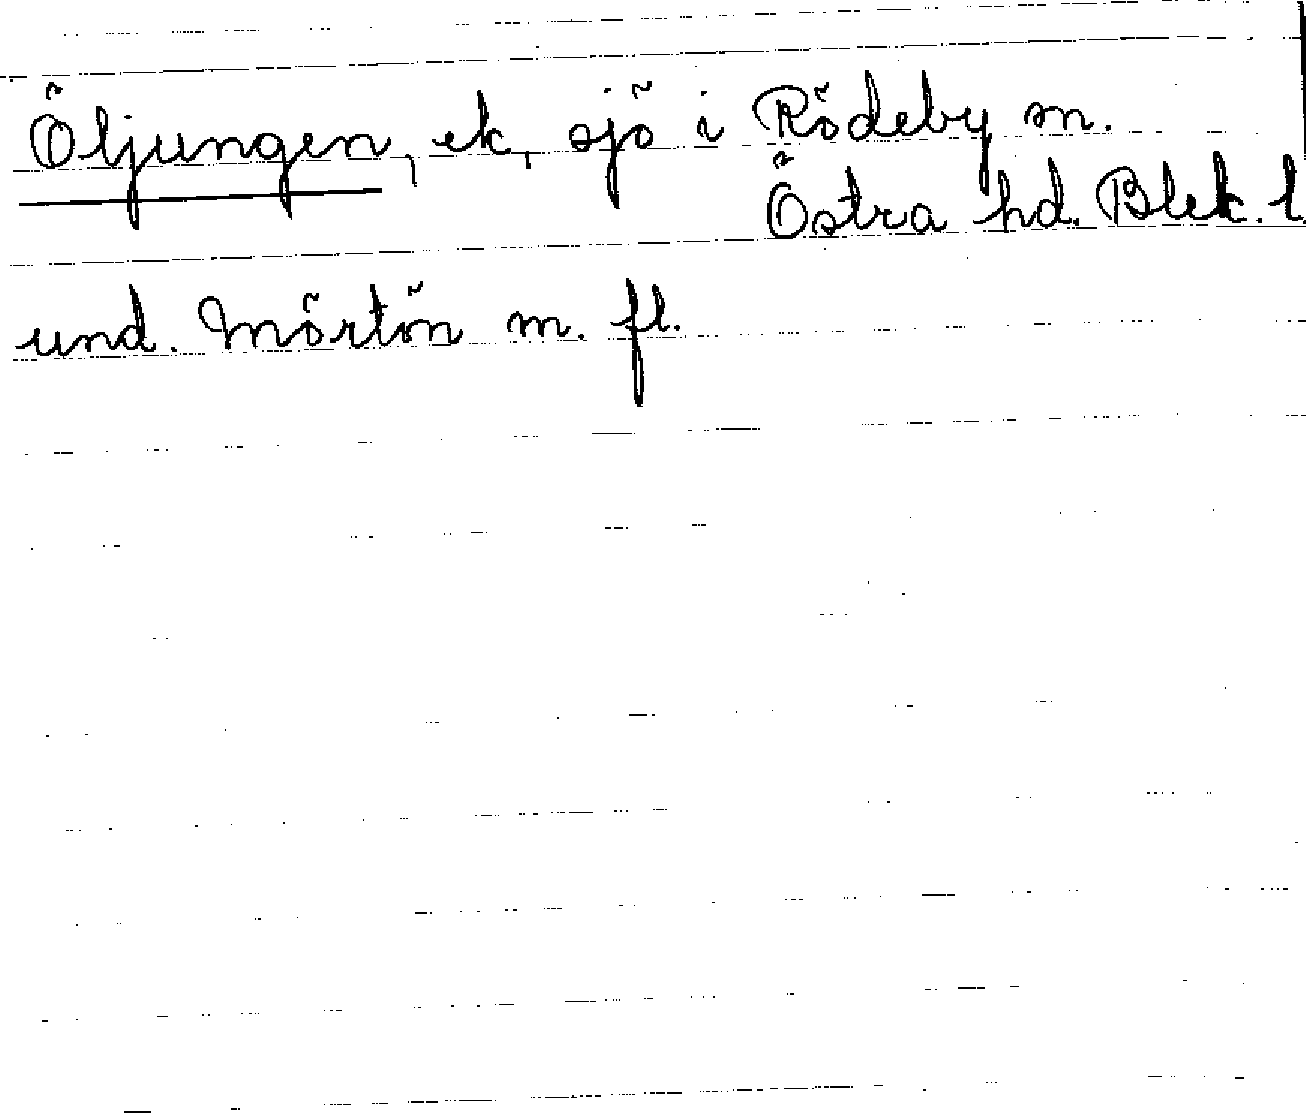 Öljungen, ek, sjö i Rödeby m.
Östra hd. Blek. l.
und. Mörtön m. fl.